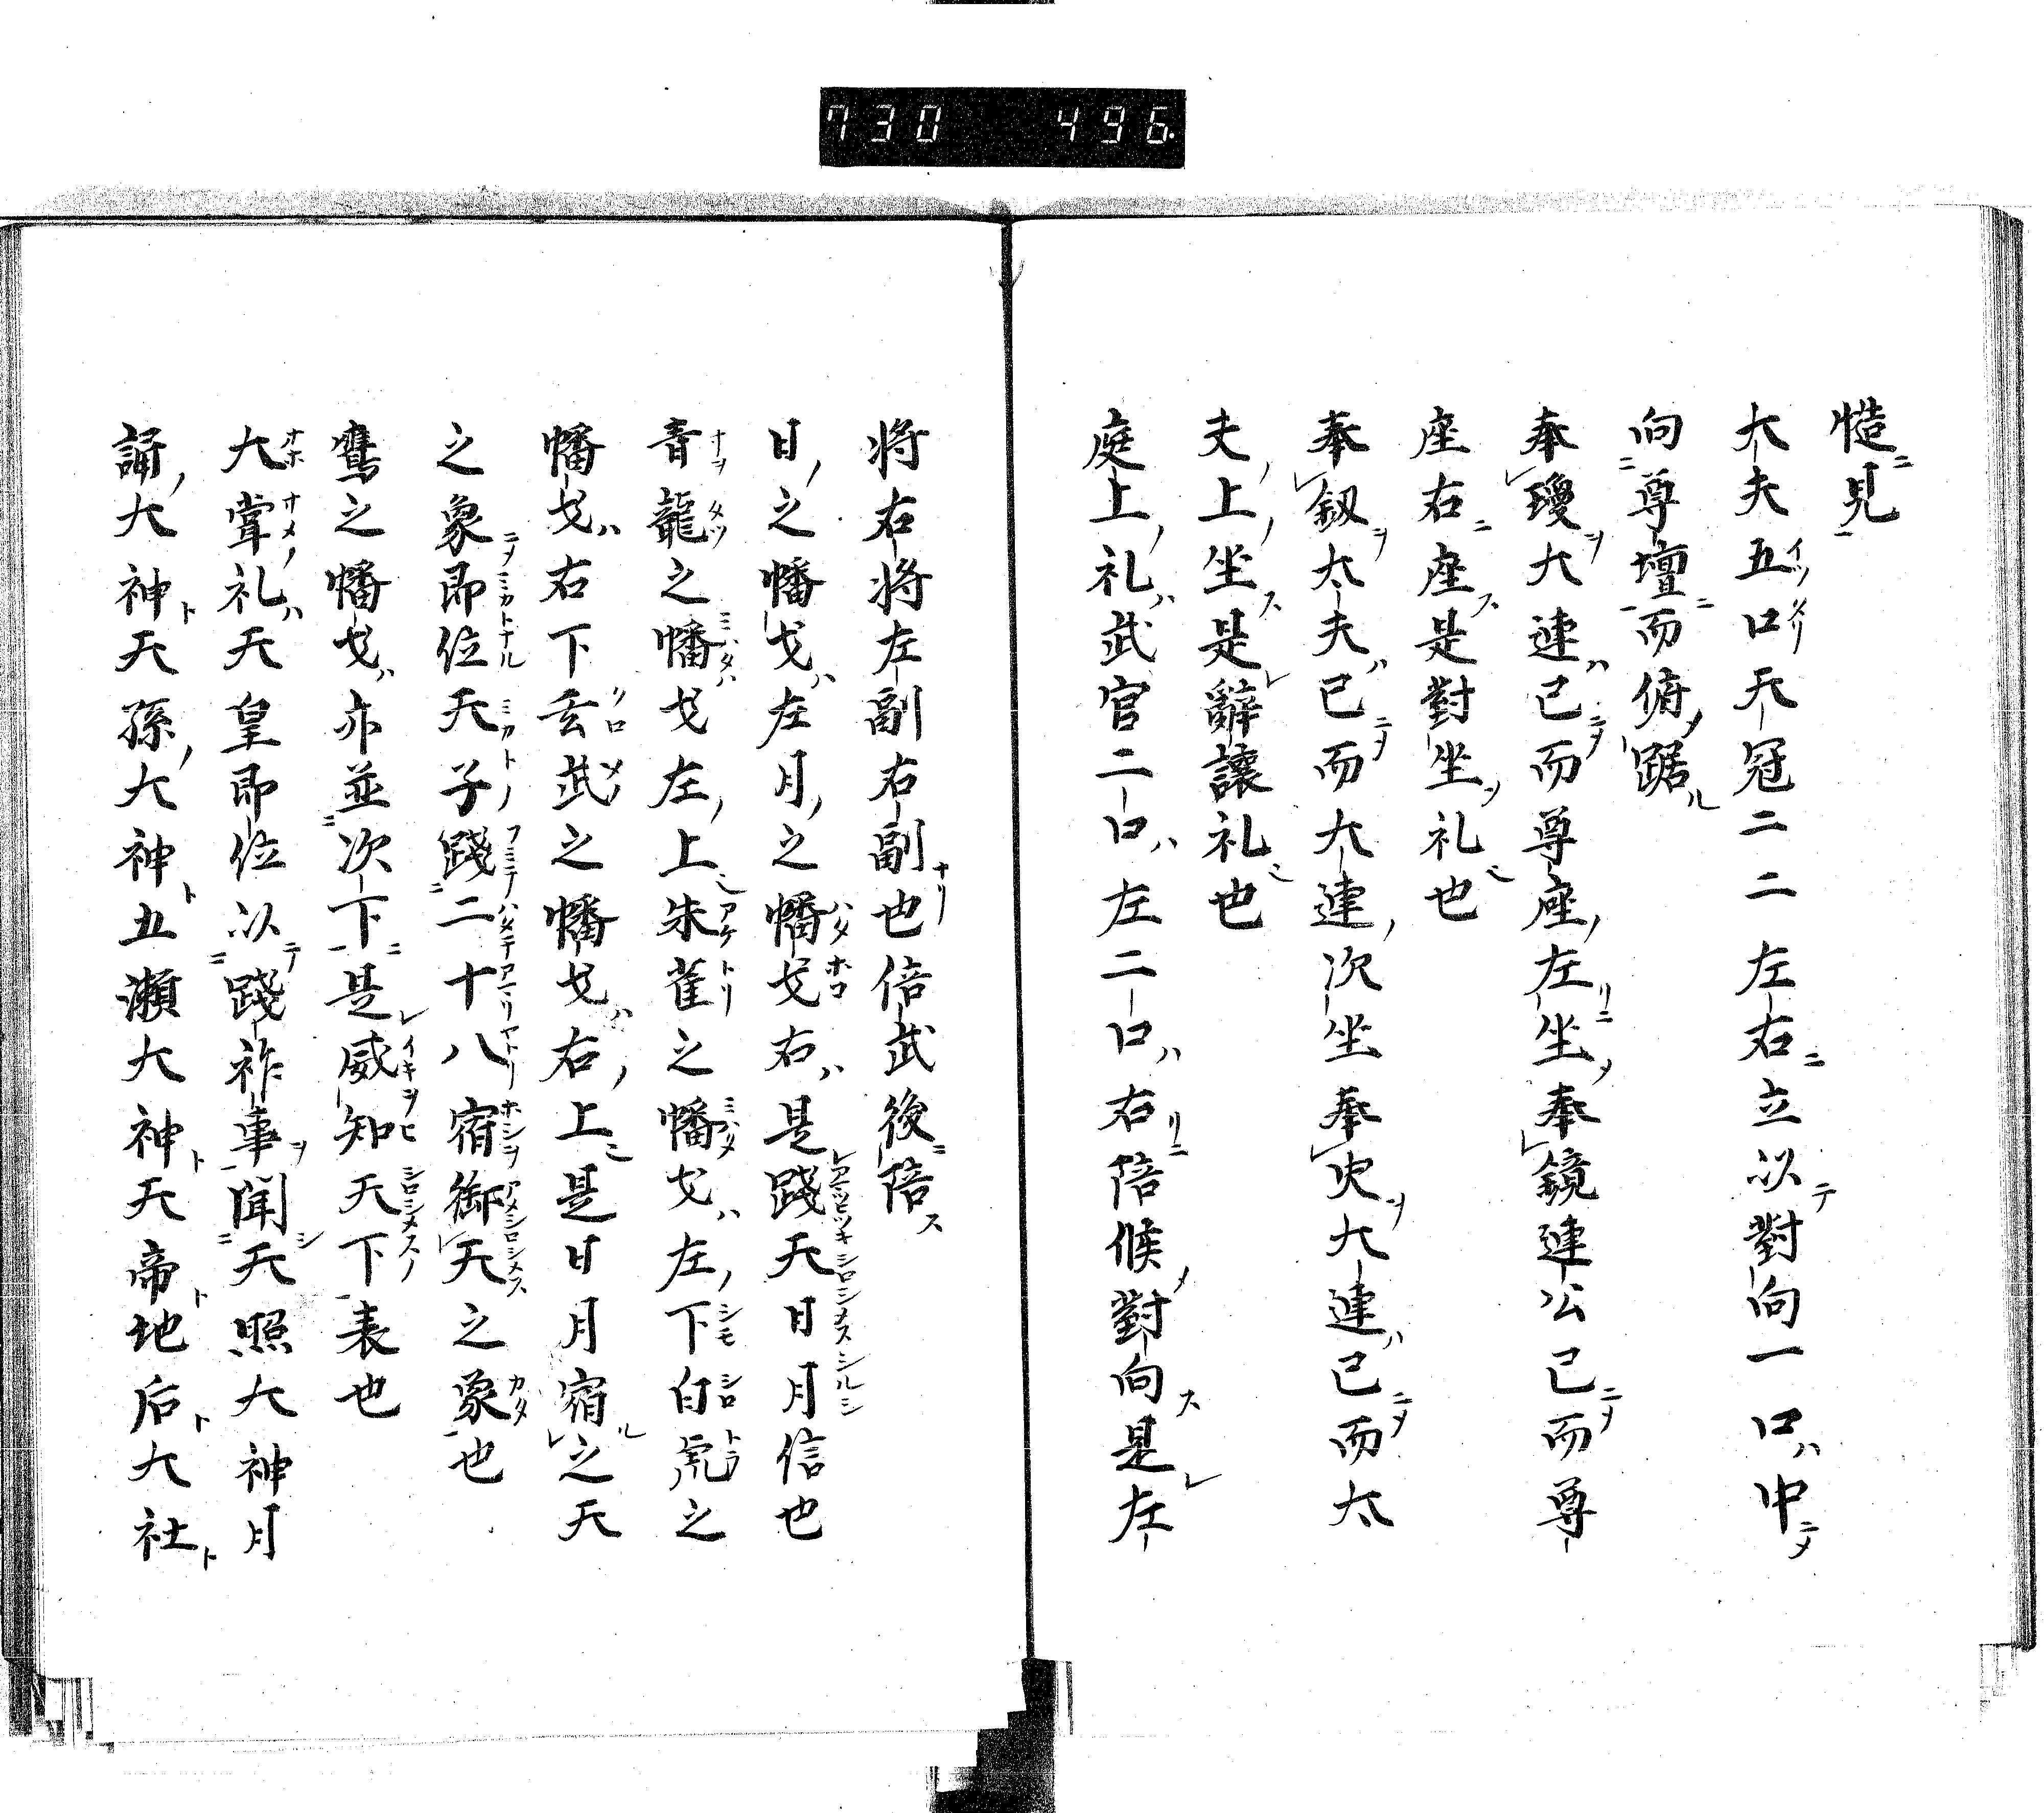 730 496
慥見
大夫五口天冠二二左右立以對向一口中
向尊壇而俯踞
奉瓊大連已而尊座左坐奉鏡連公已而尊
座右座是對坐礼也
奉釼太夫已而大連次坐奉火大連已而太
夫上坐是辭讓礼也
庭上礼武官二口左二口右陪候對向是左
将右将左副右副也倍武後陪
日之幡戈左月之幡戈右是踐天日月信也
青龍之幡戈左上朱雀之幡戈左下白虎之
幡戈右下玄武之幡戈右上是日月宿之天
之象即位天子踐二十八宿御天之象也
鷹之幡戈亦並次下是威知天下表也
大甞礼天皇即位以踐祚事聞天照大神月
誦大神天孫大神五瀬大神天帝地后大社